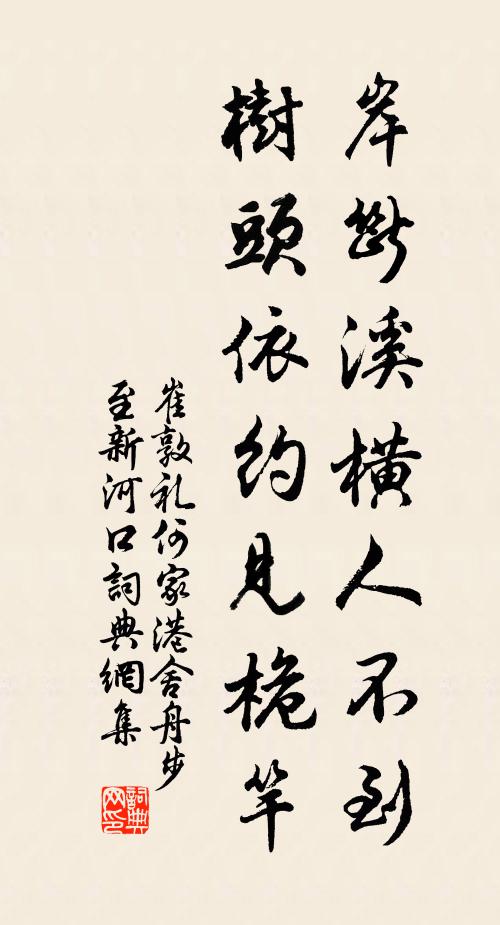 岸斷溪橫人不到
樹頭依約見桅竿
崔敦礼何家港舍舟步
至新河口詞典網集
詞典网印